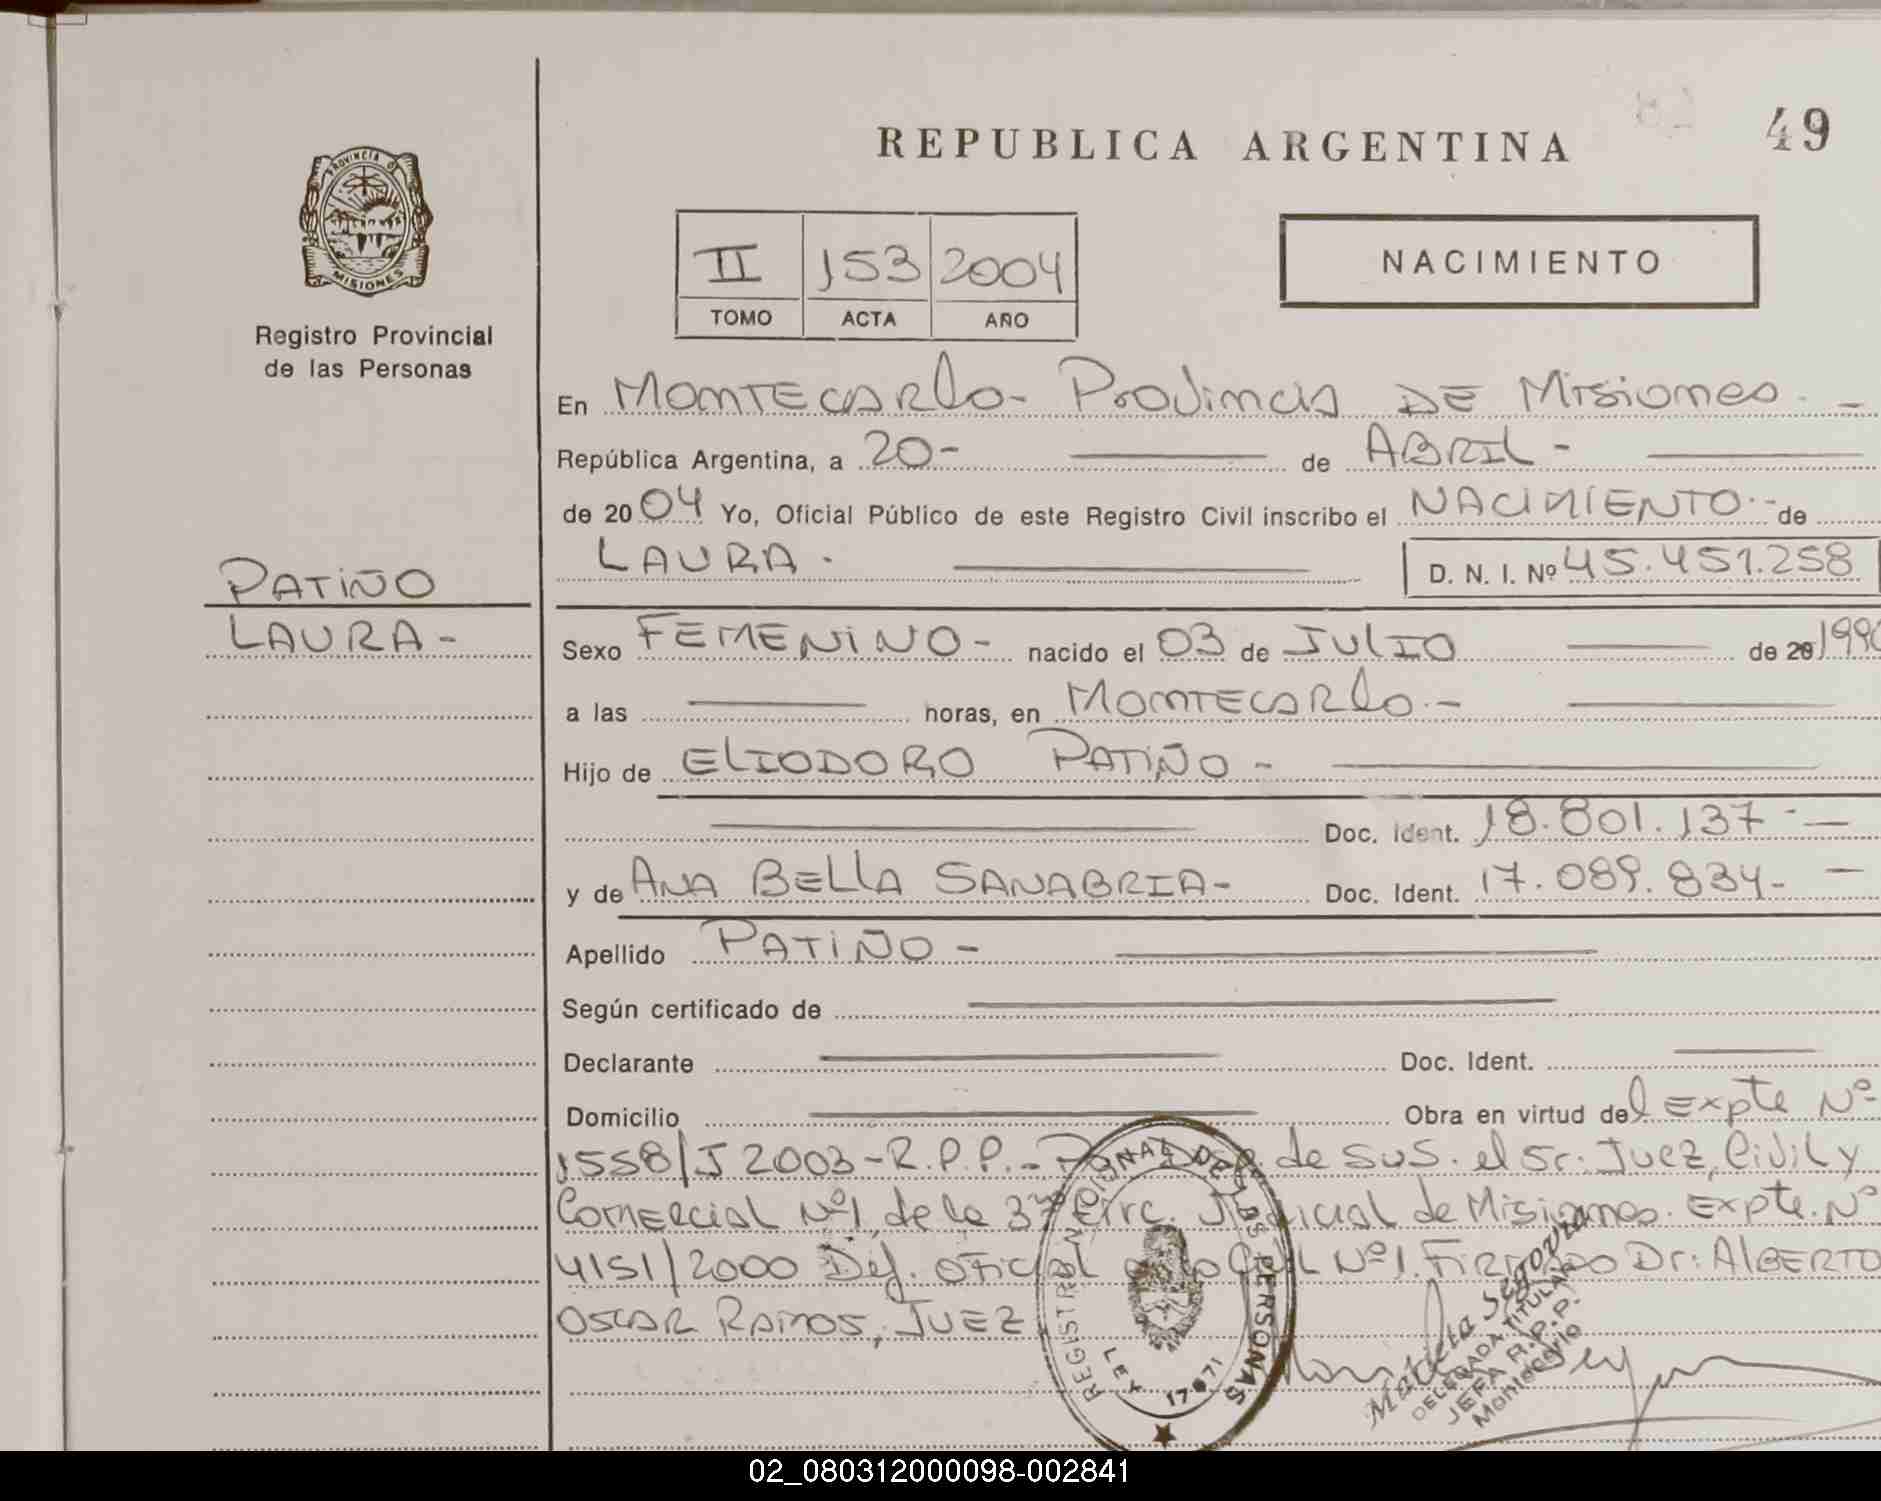 49
REPUBLICA ARGENTINA
PROVINCIA DE
MISIONES
Registro Provincial
de las Personas
II 153 2004
TOMO ACTA AÑO
NACIMIENTO
En MONTECARLO- PROVINCIA DE MISIONES. -
República Argentina, a 20- de ABRIL -
de 2004 Yo, Oficial Público de este Registro Civil inscribo el NACIMIENTO.- de
LAURA. D. N. I. Nº 45.451.258
PATIÑO
LAURA-
Sexo FEMENINO- nacido el 03 de JULIO de 20
a las horas, en MONTECARLO.-
Hijo de ELIODORO PATIÑO -
Doc. Ident. 18.801.137.-
y de ANA BELLA SANABRIA- Doc. Ident. 17.089.834- -
Apellido PATIÑO -
Según certificado de
Declarante Doc. Ident.
Domicilio Obra en virtud del Expte Nº
1558/J 2003-R.P.P.- de sus. el Sr. Juez, Civil y
Comercial Nº1 de la 3ra Circ. Judicial de Misiones. Expte. Nº
4151/2000 Def. OFICIAL Nº1. FIRMADO Dr: ALBERTO
OSCAR RAMOS, JUEZ
REGISTRO NACIONAL DE LAS PERSONAS
LEY 17671
Segovia
DELEGADA TITULAR
JEFA R.P.P.
Montecarlo
02_080312000098-002841